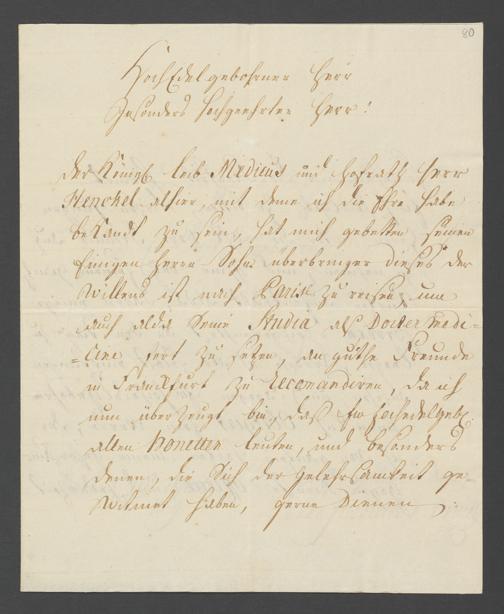 80
HochEdelgebohrner Herr
Besonders hochgeehrter Herr!
der Königl. leib Medicus und Hofrath Herr
Henckel alhier, mit deme ich die Ehre habe
bekandt zu sein, hat mich gebetten seinen
Einigen Herrn Sohn überbringer dieses der
Willens ist nach Paris zu reisen, um
auch alda seine Studia als Docter Medi=
=cine fort zu setzen, an guthe Freunde
in Franckfurt zu recomandiren, da ich
nun überzeugt bin, daß Ew Hochedelgeb.
allen honetten leuten, und besonders
denen, die sich der gelehrsamkeit ge=
widmet haben, gerne dienen